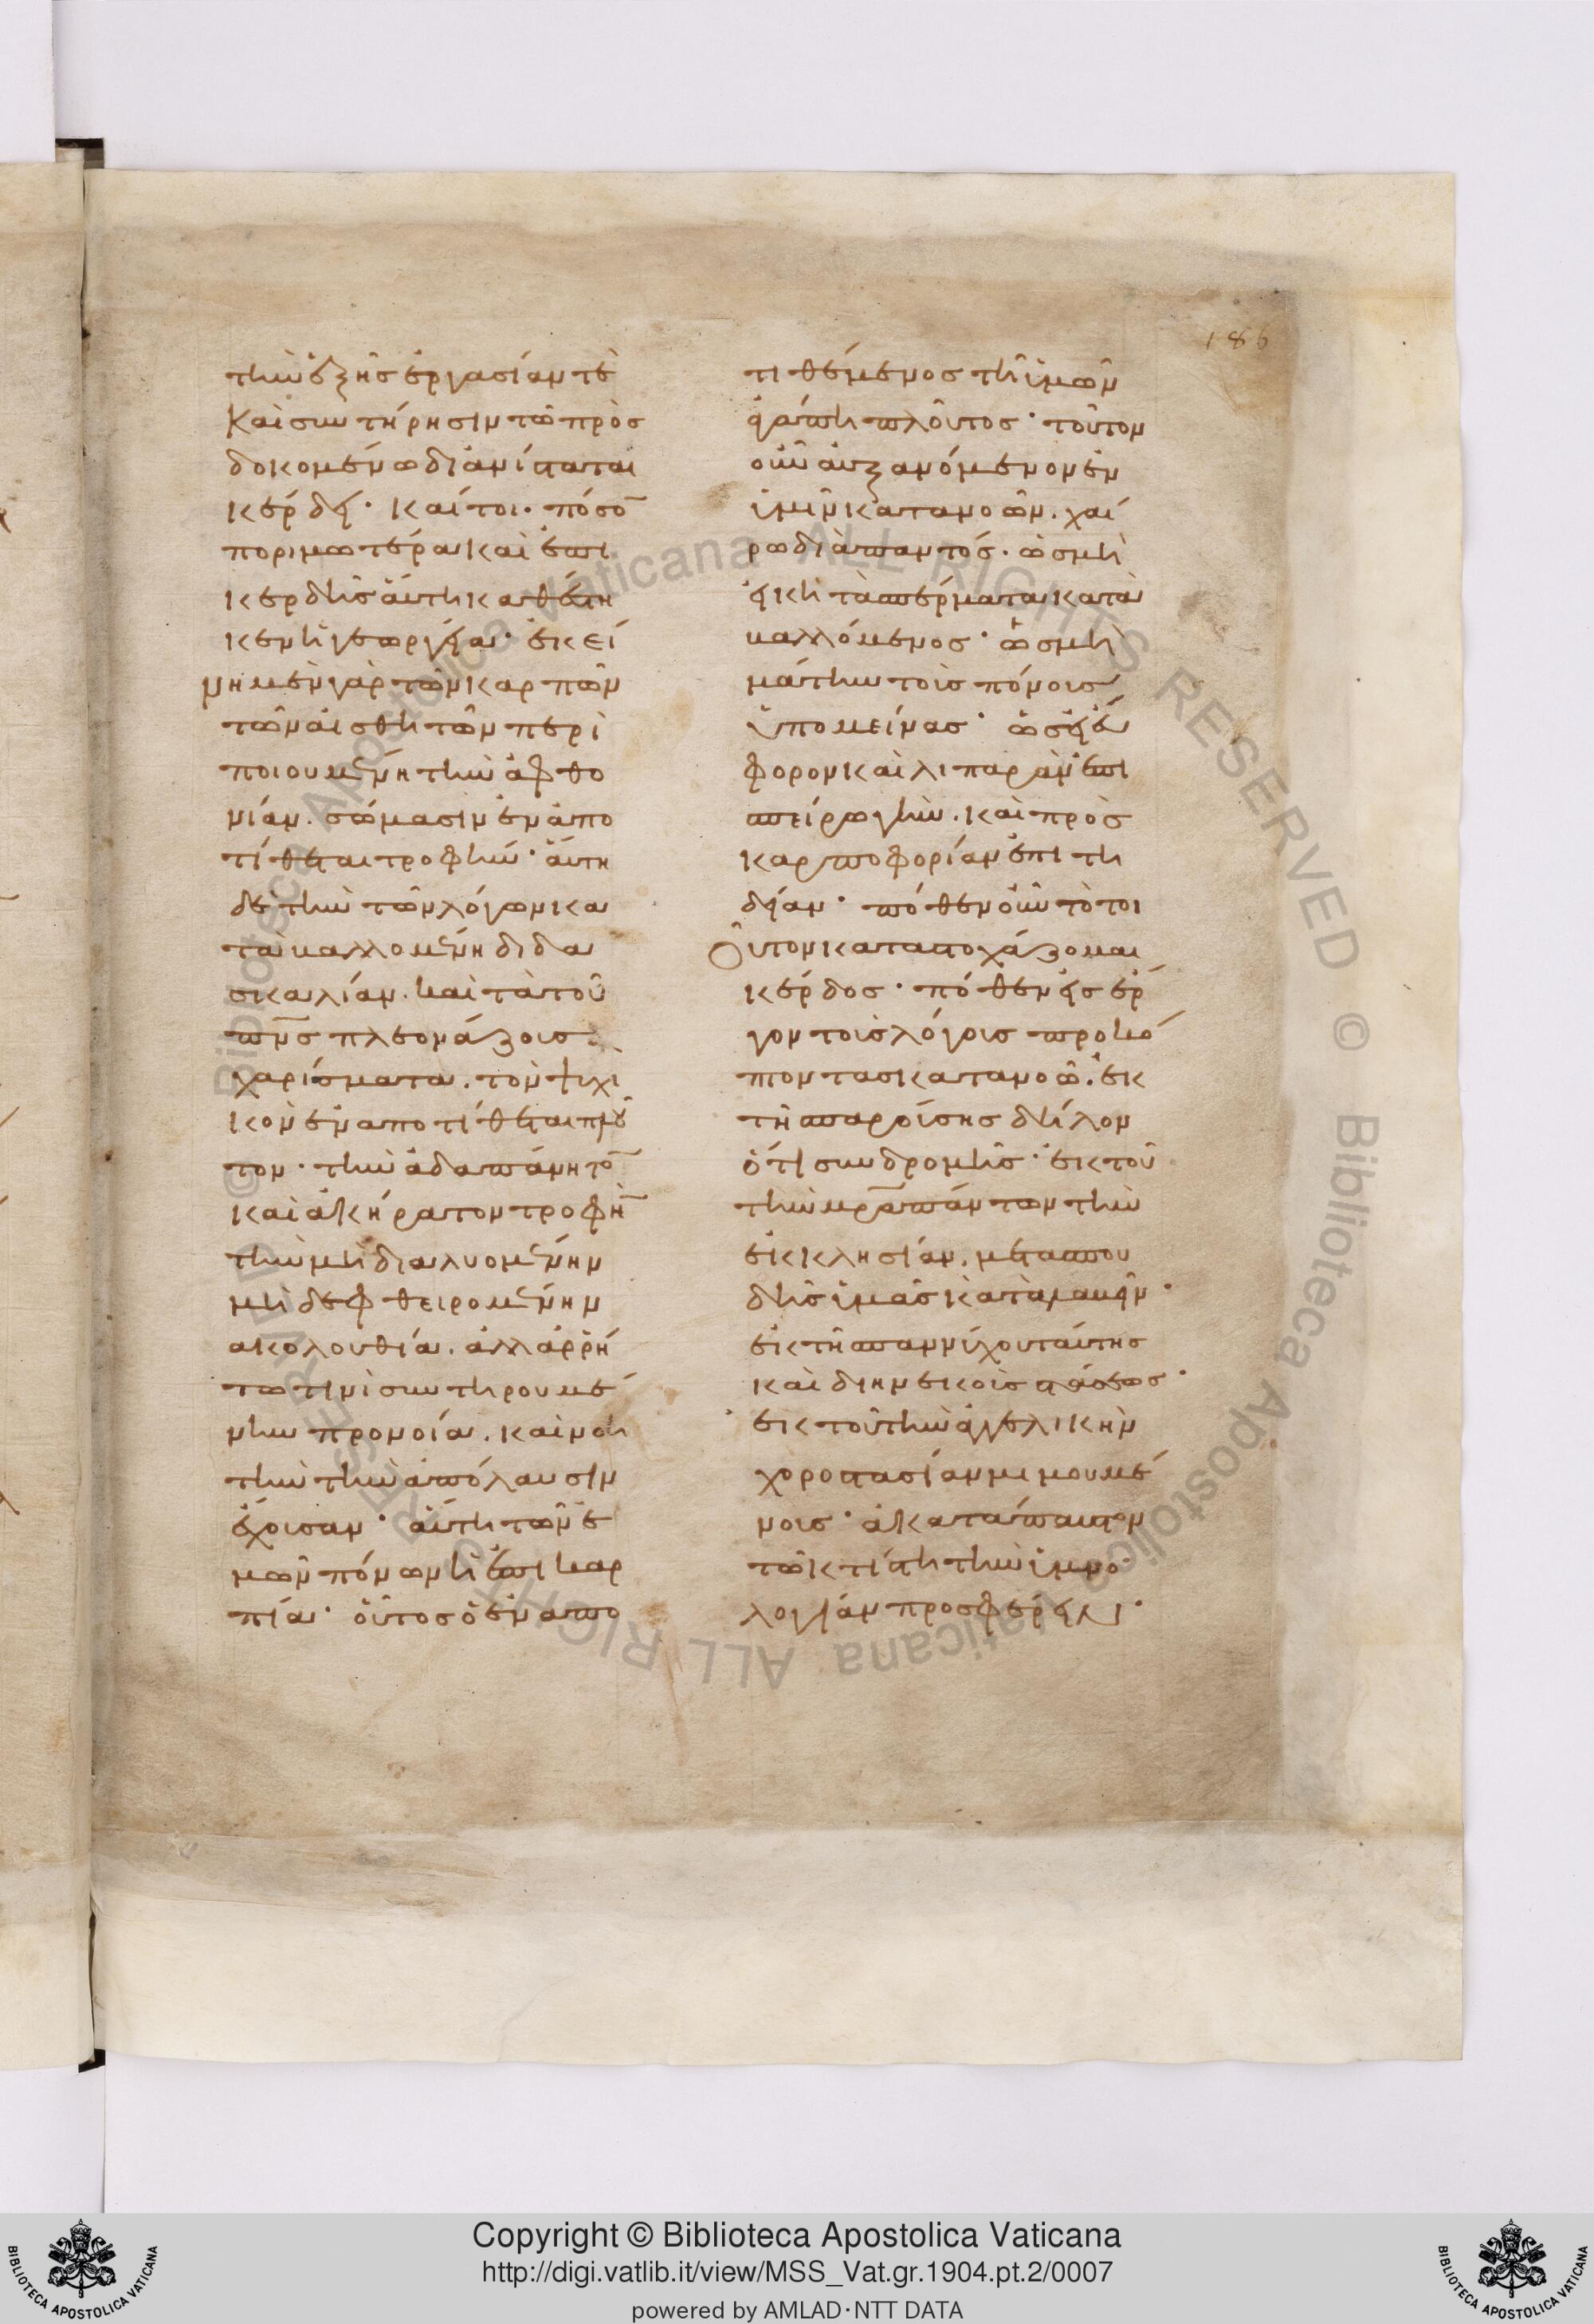 186
τὴν ἑξῆς ἐργασίαν τὲ
καὶ συντήρησιν τῶ προσ
δοκομένω διανίσταται
κέρδει· καίτοι· πόσο̅
ποριμωτέρα καὶ ἐπι
κερδὴς αὕτη καθέστη
κεν ἡ γεωργεία· ἐκεί
νη μὲν γὰρ τῶν καρπῶν
τῶν αἰσθητῶν περι
ποιουμένη τὴν ἀφθο
νίαν. σώμασιν ἐναπο
τίθεται τροφὴν· αὕτη
δὲ τὴν τῶν λόγων κα
ταβαλλομένη διδα
σκαλίαν. καὶ τὰ τοῦ
πν̅ς πλεονάζουσα
χαρίσματα. τὸν ψυχι
κὸν ἐναποτίθεται πλοῦ
τον· τὴν ἀδαπάνητο̅
καὶ ἀκήρατον τροφὴ̅
τὴν μὴ διαλυομένην
μὴ δὲ φθειρομένην
ἀκολουθία. ἀλλ' ἀρρή
τω τινὶ συντηρουμέ
νην προνοία. καὶ νοη
τὴν τὴν ἀπόλαυσιν
ἔχουσαν· αὕτη τῶν ἐ
μῶν πόνων ἡ ἐπικαρ
πία· οὗτος ὁ ἐναπο
τιθέμενος τῆ ὑμῶν
ἀγάπη πλοῦτος· τοῦτον
οὖν αὐξανόμενον ἐν
ὑμῖν κατανοῶν. χαί
ρω διαπαντός. ὡς μὴ
εἰκῆ τὰ σπέρματα κατα
βαλλόμενος· ὡς μὴ
μάτην τοῖς πόνοις
ὑπομείνας· ὡς εἰς εὔ
φορον καὶ λιπαρὰν ἐπι
σπείρω γῆν. καὶ πρὸς
καρποφορίαν ἐπιτη
δείαν· πόθεν οὖν τὸ τοι
οῦτον καταστοχάζομαι
κέρδος· πόθεν εἰς ἔρ
γον τοῖς λόγοις προκό
πτοντας κατανοῶ. ἐκ
τῆς παρούσης δῆλον
ὅτι συνδρομῆς· ἐκ τοῦ
τὴν μρ̅α πάντων τὴν
ἐκκλησίαν. μετὰ σπου
δῆς ὑμᾶς καταλαβεῖν·
ἐκ τῆς παννύχου ταύτης
καὶ διηνεκοῦς στάσεως·
ἐκ τοῦ τὴν ἀγγελικὴν
χοροστασίαν μιμουμέ
νους· ἀκατάπαυστον
τῶ κτίστη τὴν ὑμνο
λογίαν προσφέρειν·
Copyright © Biblioteca Apostolica Vaticana
http://digi.vatlib.it/view/MSS_Vat.gr.1904.pt.2/0007
powered by AMLAD·NTT DATA